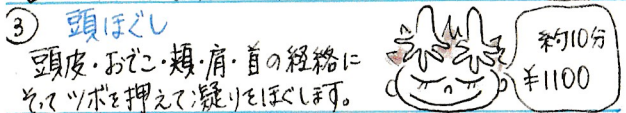 ③ 頭ほぐし
頭皮・おでこ・頬・肩・首の経絡に
そってツボを押えて凝りをほぐします。
約10分
¥1100